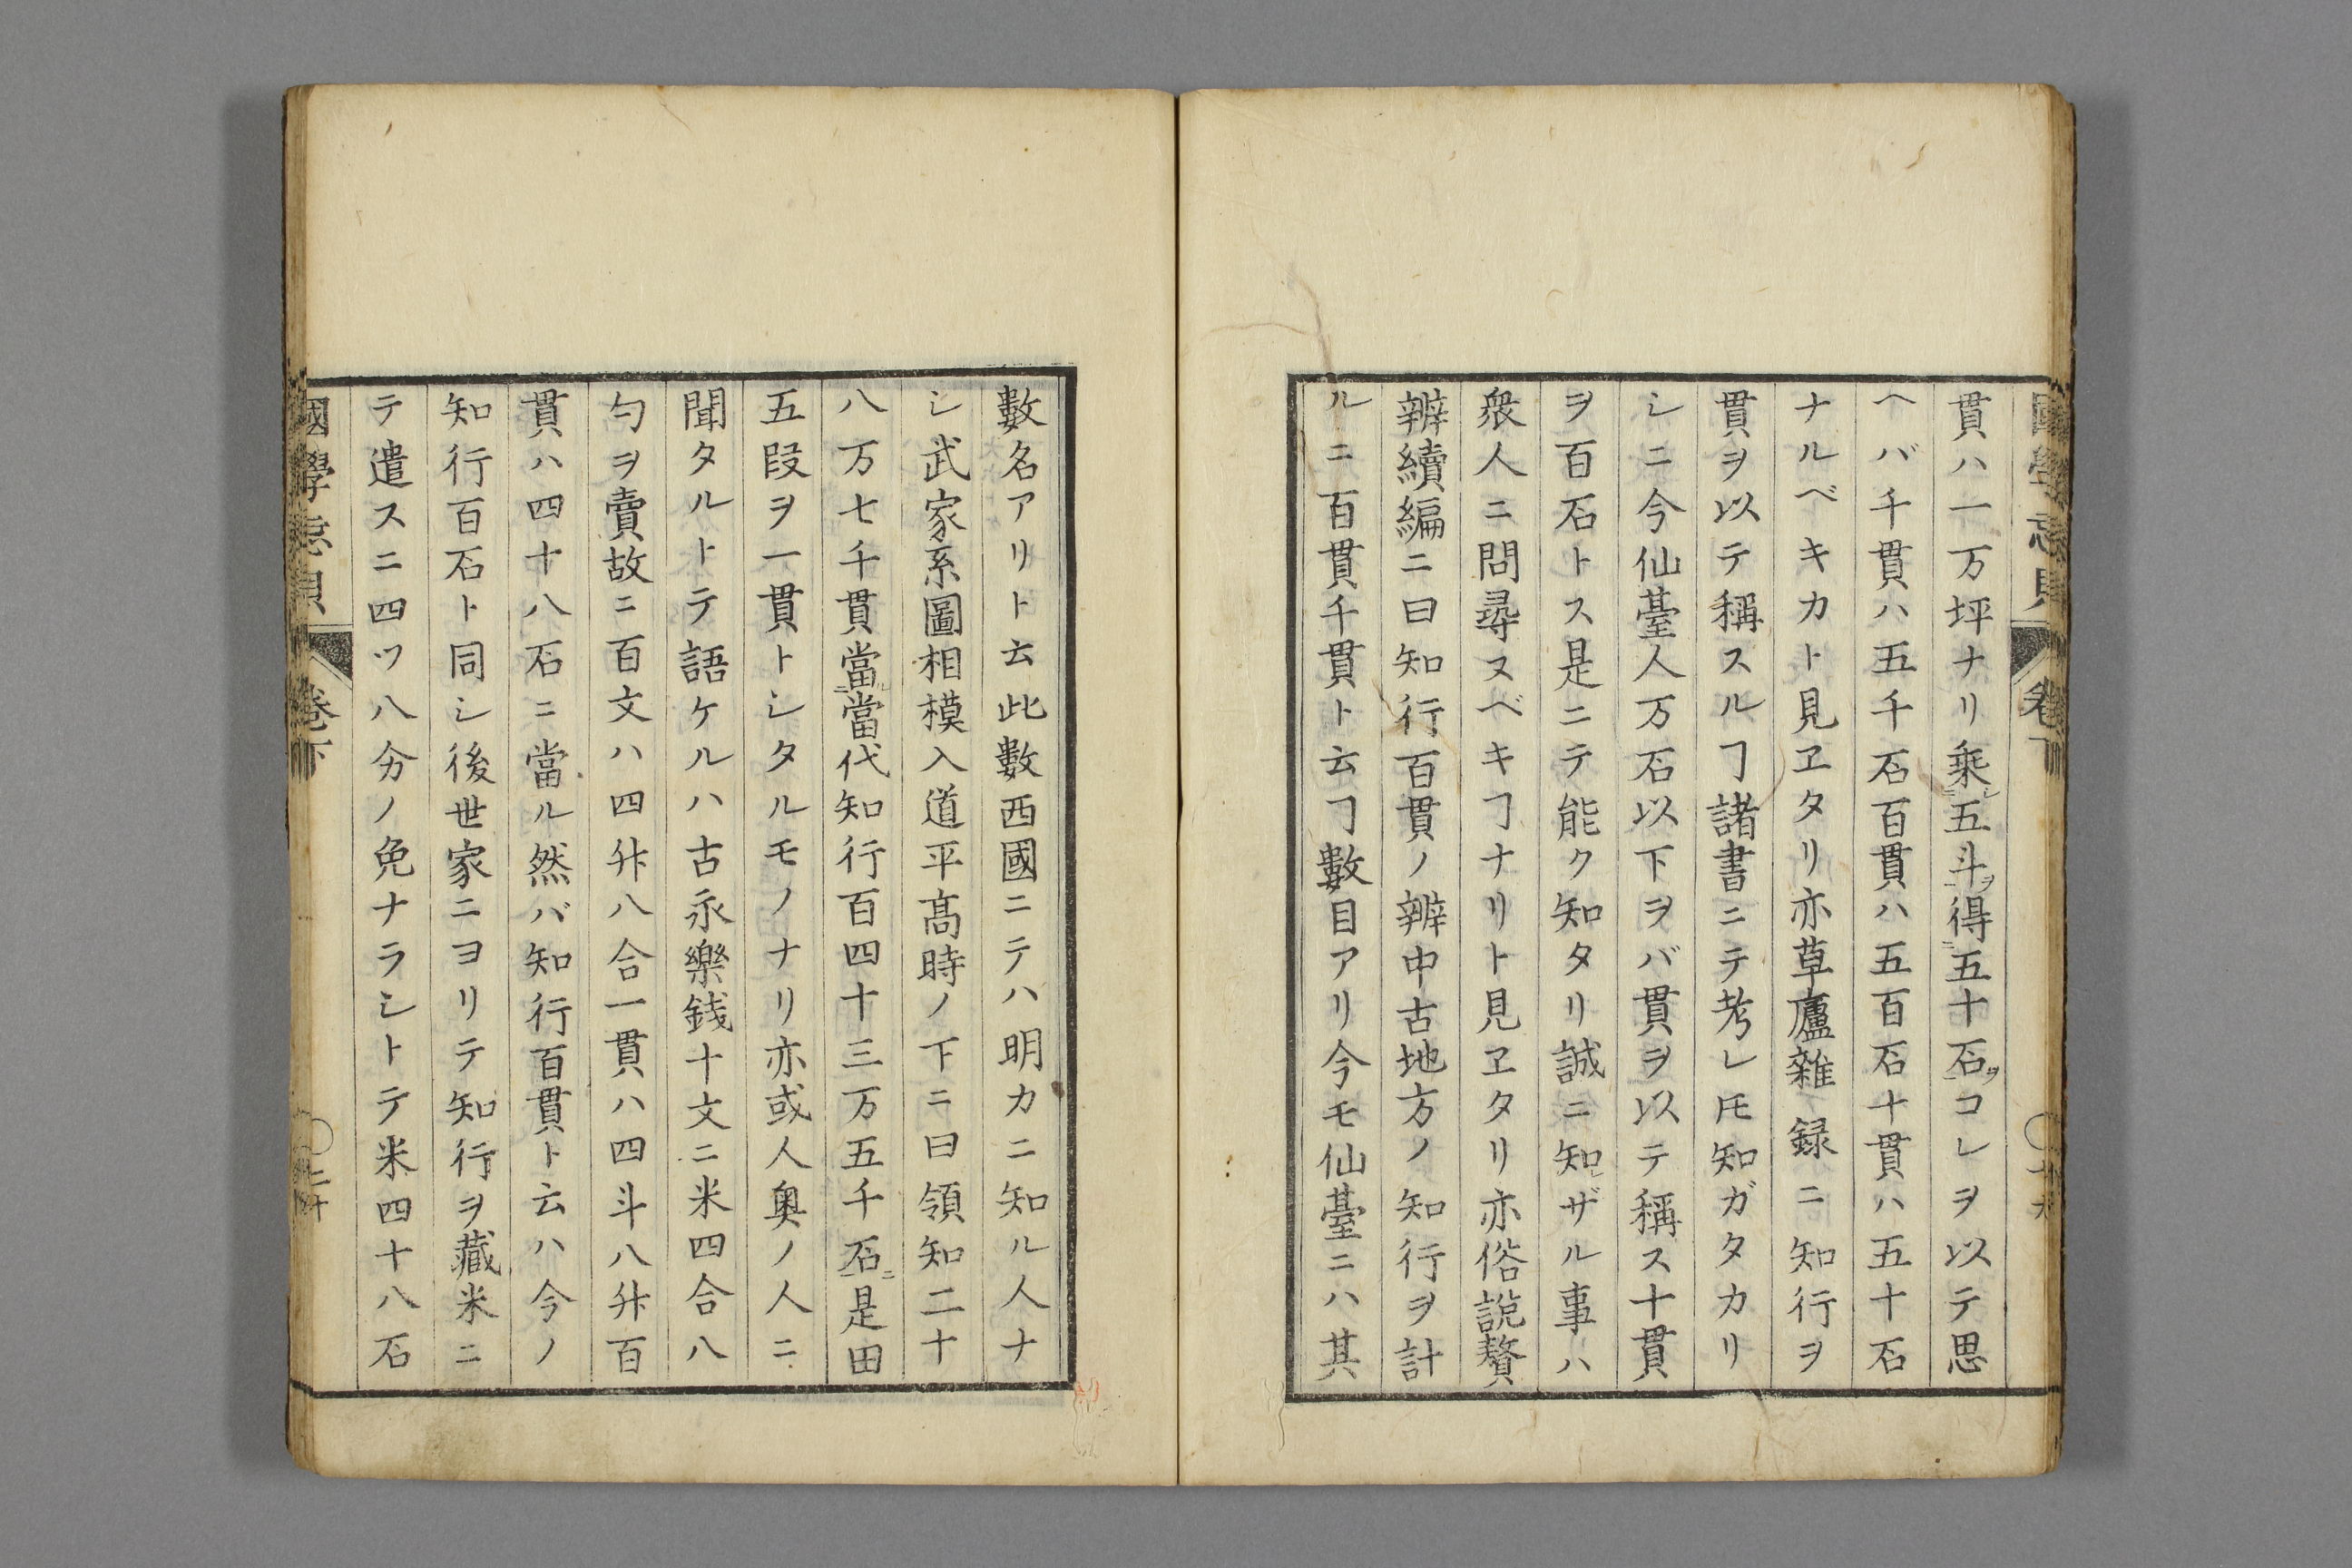 貫ハ一万坪ナリ乗シ五斗ヲ得ニ五十石ヲコレヲ以テ思
ヘバ千貫ハ五千石百貫ハ五百石十貫ハ五十石
ナルベキカト見ヱタリ亦草廬雜録ニ知行ヲ
貫ヲ以テ稱スルヿ諸書ニテ考レ𪜈知ガタカリ
シニ今仙臺人万石以下ヲバ貫ヲ以テ稱ス十貫
ヲ百石トス是ニテ能ク知タリ誠ニ知ザル事ハ
衆人ニ問尋ヌベキヿナリト見ヱタリ亦俗説贅
辨續編ニ曰知行百貫ノ辨中古地方ノ知行ヲ計
ルニ百貫千貫ト云ヿ數目アリ今モ仙臺ニハ其
數名アリト云此數西國ニテハ明カニ知ル人ナ
シ武家系圖相模入道平髙時ノ下ニ曰領知二十
八万七千貫當ニ當代知行百四十三万五千石ニ是田
五段ヲ一貫トシタルモノナリ亦或人奥ノ人ニ
聞タルトテ語ケルハ古永樂銭十文ニ米四合八
勺ヲ賣故ニ百文ハ四升八合一貫ハ四斗八升百
貫ハ四十八石ニ當ル然バ知行百貫ト云ハ今ノ
知行百石ト同シ後世家ニヨリテ知行ヲ藏米ニ
テ遣スニ四ツ八分ノ免ナラシトテ米四十八石
國學忘貝 卷下